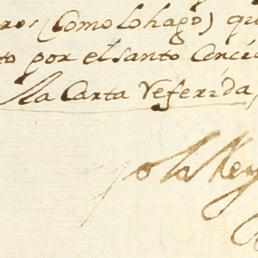 ros (Como lo hago) qu
to por el santo Concil
la Carta Referida,
Yo la Rey